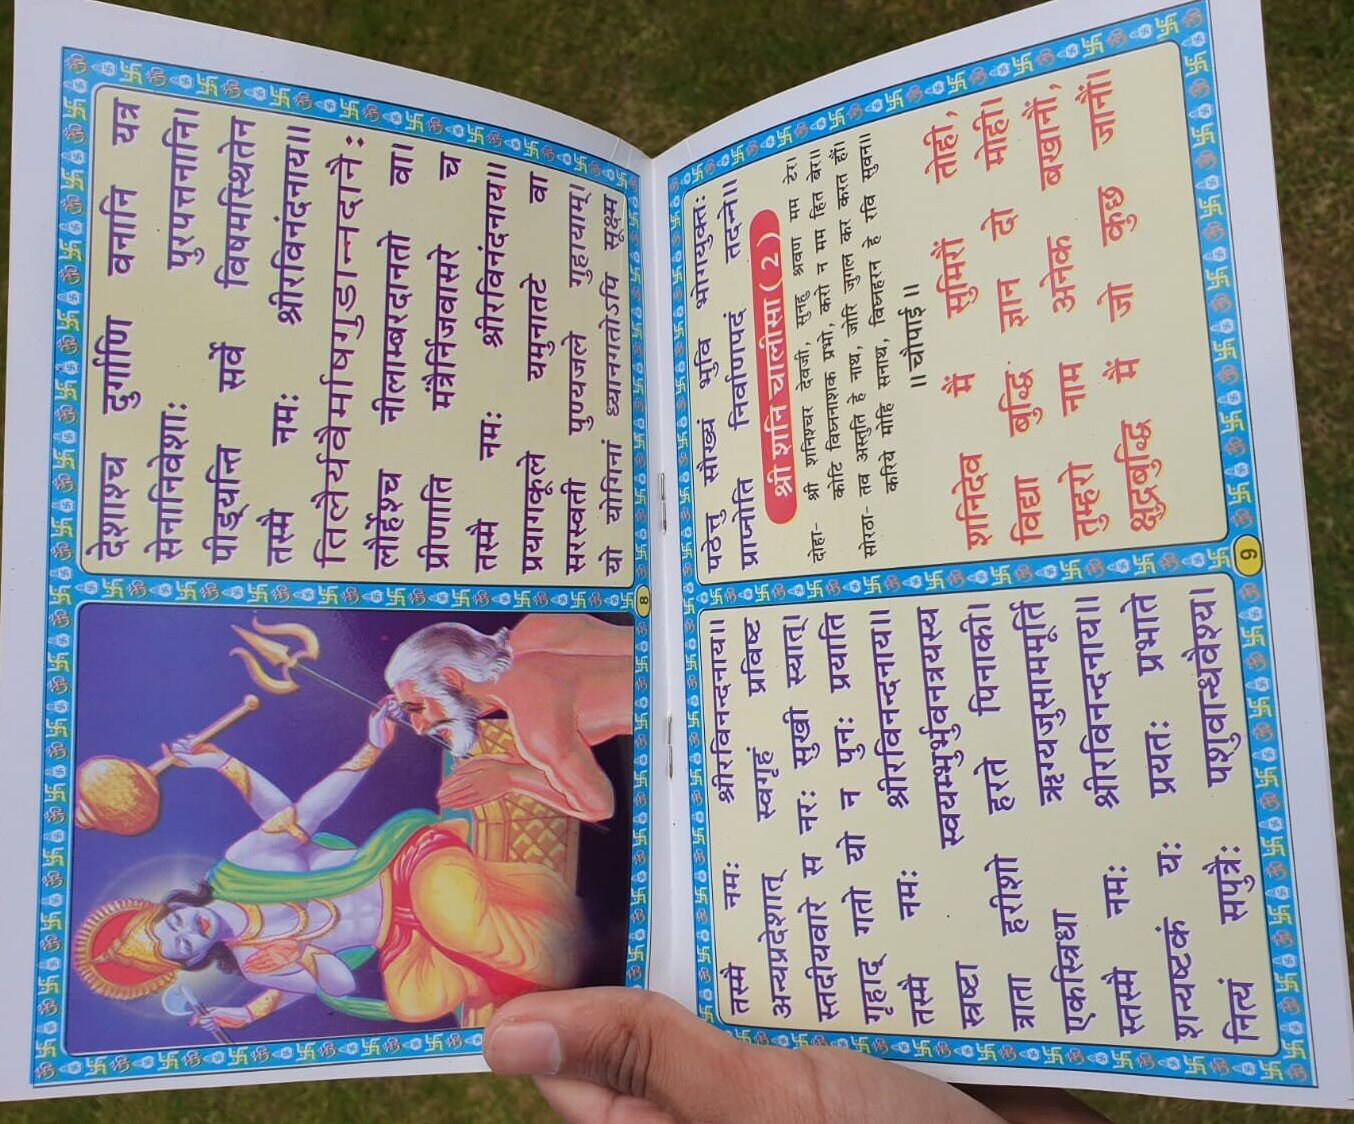 देशाश्च दुर्गाणि वनानि यत्र
सेनानिवेशाः पुरपत्तनानि।
पीड्यन्ति सर्वे विषमस्थितेन
तस्मै नमः श्रीरविनंदनाय॥
तिलैर्यवैर्माषगुडान्नदानैः
लौर्हैश्च नीलाम्बरदानतो वा।
प्रीणाति मंत्रैर्निजवासरे च
तस्मै नमः श्रीरविनंदनाय॥
प्रयागकूले यमुनातटे वा
सरस्वती पुण्यजले गुहायाम्।
यो योगिनां ध्यानगतोऽपि सूक्ष्म
8
तस्मै नमः श्रीरविनन्दनाय॥
अन्यप्रदेशात् स्वगृहं प्रविष्ट
स्तदीयवारे स नरः सुखी स्यात्।
गृहाद् गतो यो न पुनः प्रयाति
तस्मै नमः श्रीरविनन्दनाय॥
स्रष्टा स्वयम्भूर्भुवनत्रयस्य
त्राता हरीशो हरते पिनाकी।
एकस्त्रिधा ऋग्यजुसाममूर्ति
स्तस्मै नमः श्रीरविनन्दनाय॥
शन्यष्टकं यः प्रयतः प्रभाते
नित्यं सपुत्रैः पशुवान्धवैश्य।
पठेत्तु सौख्यं भुवि भोगयुक्तः
प्राप्नोति निर्वाणपदं तदन्ते॥
श्री शनि चालीसा ( 2 )
दोहा- श्री शनिश्चर देवजी, सुनहु श्रवण मम टेर।
कोटि विघ्ननाशक प्रभो, करो न मम हित बेर॥
सोरठा- तव अस्तुति हे नाथ, जोरि जुगल कर करत हौं।
करिये मोहि सनाथ, विघ्नहरन हे रवि सुवन॥
॥ चौपाई ॥
शनिदेव मैं सुमिरौं तोही,
विद्या बुद्धि ज्ञान दो मोही।
तुम्हरो नाम अनेक बखानौं,
क्षुद्रबुद्धि मैं जो कुछ जानौं।
9